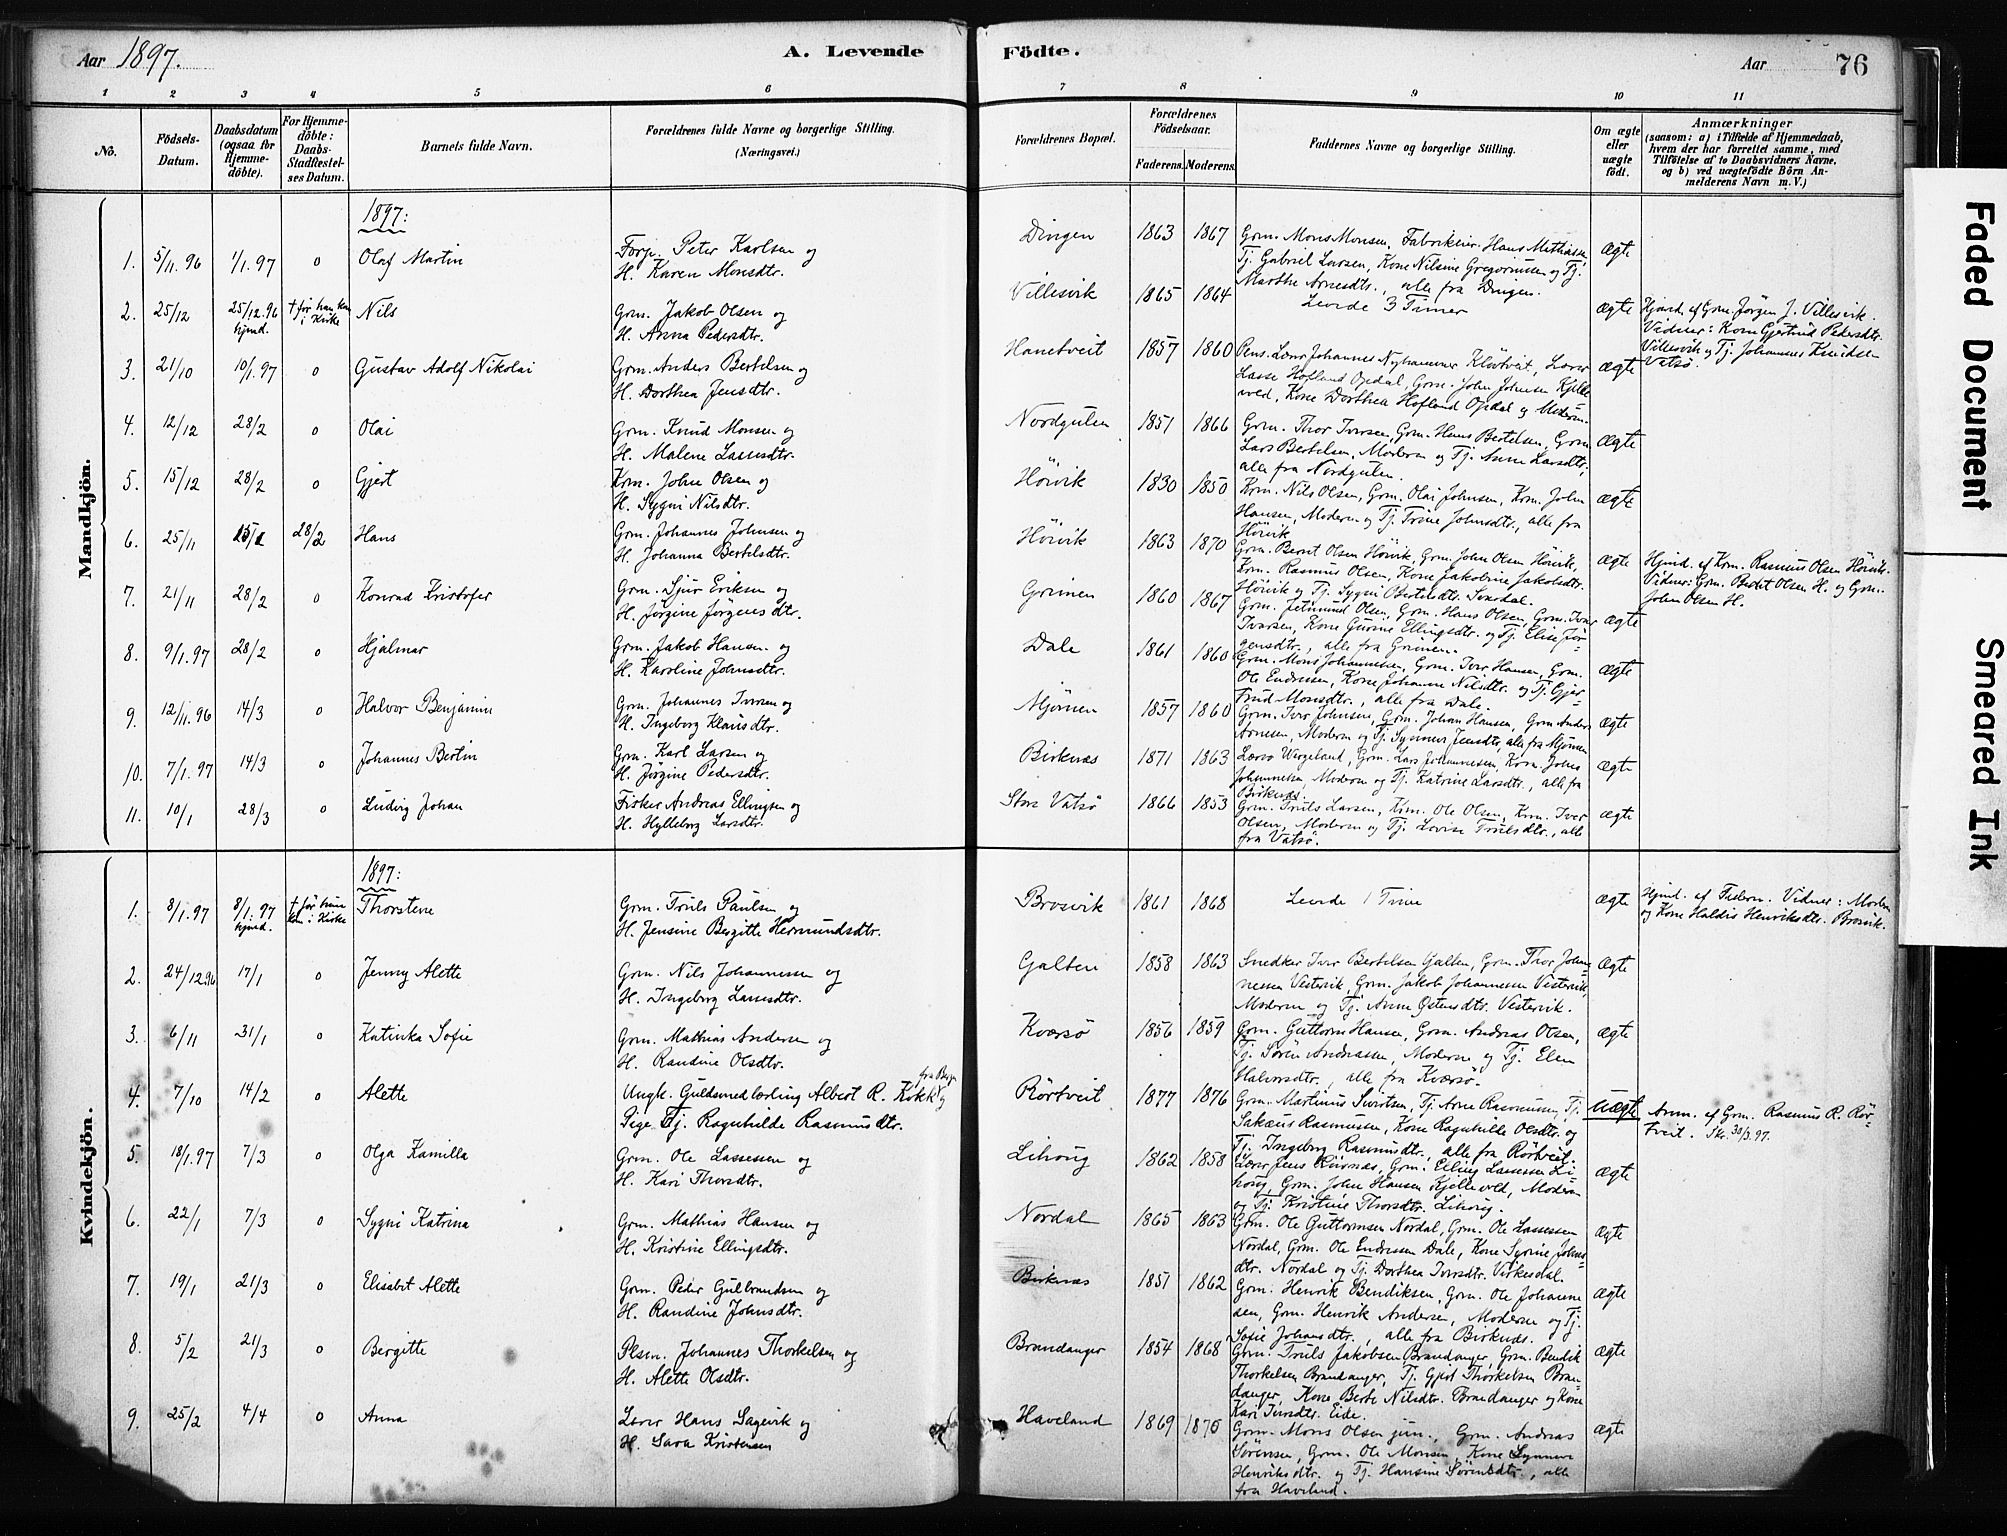 Aar 1897.
A. Levende
Födte.
Aar
76
1 2 3 4 5 6 7 8 9 10 11
No.
Födsels-
Datum.
Daabsdatum
(ogsaa for
Hjemme-
döbte).
For Hjemme-
döbte:
Daabs-
Stadfæstel-
ses Datum.
Barnets fulde Navn.
Forældrenes fulde Navne og borgerlige Stilling.
(Næringsvei.)
Forældrenes Bopæl.
Forældrenes
Födselsaar.
Faderens. Moderens.
Faddernes Navne og borgerlige Stilling.
Om ægte
eller
uægte
födt.
Anmærkninger
(saasom: a) i Tilfælde af Hjemmedaab,
hvem der har forrettet samme, med
Tilföielse af to Daabsvidners Navne,
og b) ved uægtefödte Börn An-
melderens Navn m. V.)
Mandkjön.
1897:
1. 5/11.96 1/1.97 0 Olaf Martin
Forp. Peter Karlsen og
H. Karen Monsdtr.
Dingen 1863 1867
Grm. Mons Monsen, Fabrikeier Hans Mathiassen
Tj. Gabriel Larsen, Kone Nilsine Gregoriusen og Tj.
Marthe Arnesdtr., alle fra Dingen.
Ægte
2. 25/12 25/12.96 hjmd. † før han kom i Kirke Nils
Grm. Jakob Olsen og
H. Anna Pedersdtr.
Villesvik 1865 1864
Levede 3 Timer
Ægte
Hjmd. af Grm. Jørgen J. Villesvik.
Vidner: Kone Gjertrud Pedersdtr.
Villesvik og Tj. Johannes Knudsen
Vatsø.
3. 21/10 10/1.97 0 Gustav Adolf Nikolai
Grm. Anders Bertelsen og
H. Dorthea Jensdtr.
Hanetveit 1857 1860
Pens. Lærer Johannes Nyhammer Kløvtveit, Lærer
Lasse Hofland Opdal, Grm. John Johnsen Kjelle-
vold, Kone Dorthea Hofland Opdal og Moderen.
Ægte
4. 12/12 28/2 0 Olai
Grm. Knud Monsen og
H. Malene Lassesdtr.
Nordgulen 1851 1866
Grm. Thor Iversen, Grm. Hans Bertelsen, Grm.
Lars Bertelsen, Moderen og Tj. Anne Larsdtr.,
alle fra Nordgulen.
Ægte
5. 15/12 28/2 0 Gjert
Krm. John Olsen og
H. Sygni Nilsdtr.
Höivik 1830 1850
Krm. Nils Olsen, Grm. Olai Johnsen, Krm. John
Hansen, Moderen og Tj. Trine Johnsdtr., alle fra
Höivik
Ægte
6. 25/11 28/2 Hans
Grm. Johannes Johnsen og
H. Johanna Bertelsdtr.
Höivik 1863 1870
Grm. Bernt Olsen Höivik, Grm. John Olsen Höivik,
Krm. Rasmus Olsen, Kone Jakobine Jakobsdtr.
Höivik og Tj. Sygni
Ægte
Hjmd. af Krm. Rasmus Olsen Höivik.
Vidner: Grm. Berht Olsen H. og Grm.
John Olsen H.
7. 21/11 28/2 0 Konrad Kristofer
Grm. Sjur Eriksen og
H. Jørgine Jørgensdtr.
Grinen 1860 1867
Grm. Jetmund Olsen, Grm. Hans Olsen, Grm. Ivar
Ivarsen, Kone Gurine Ellingsdtr. og Tj. Elise Jør-
gensdtr., alle fra Grinen.
Ægte
8. 9/1.97 28/2 0 Hjalmar
Grm. Jakob Hansen og
H. Karoline Johnsdtr.
Dale 1861 1860
Grm. Mons Johannessen, Grm. Iver Hansen, Grm.
Ole Endresen, Kone Johanne Nilsdtr. og Tj. Gjer-
trud Monsdtr., alle fra Dale.
Ægte
9. 12/11.96 14/3 0 Halvor Benjamin
Grm. Johannes Iversen og
H. Ingeborg Klausdtr.
Mjømen 1857 1860
Grm. Iver Johnsen, Grm. Johan Hansen, Grm. Anders
Arnesen, Moderen og Tj. Synneve Jensdtr., alle fra Mjømen
Ægte
10. 7/1.97 14/3 0 Johannes Bertin
Grm. Karl Larsen og
H. Jørgine Pedersdtr.
Birknæs 1871 1863
Lærer Wergeland, Grm. Lars Johannessen, Krm. Johns
Johannessen, Moderen og Tj. Katrine Larsdtr., alle fra
Birknæs.
Ægte
11. 10/1 28/3 0 Ludvig Johan
Fisker Andreas Ellingsen og
H. Hylleborg Larsdtr.
Store Vatsø 1866 1853
Grm. Truls Larsen, Krm. Ole Olsen, Krm. Iver
Olsen, Moderen og Tj. Lovise Trulsdtr., alle
fra Vatsø.
Ægte
Kvindekjön.
1897:
1. 8/1.97 8/1.97 hjmd. † før hun kom i Kirke Thorstene
Grm. Truls Paulsen og
H. Jensine Bergitte Hermundsdtr.
Brosvik 1861 1868
Levede 1 Time
Ægte
Hjmd. af Faderen. Vidner: Moderen
og Kone Haldis Henriksdtr. Brosvik.
2. 24/12.96 17/1 0 Jenny Alette
Grm. Nils Johannessen og
H. Ingeborg Larsdtr.
Galten 1858 1863
Snedker Iver Bertelsen Galten, Grm. Thor Johan-
nessen Vestervik, Grm. Jakob Johannessen Vestervik,
Moderen og Tj. Anne Østensdtr. Vestervik.
Ægte
3. 6/11 31/1 0 Katinka Sofie
Grm. Mathias Andersen og
H. Randine Olsdtr.
Kversø 1856 1859
Grm. Guttorm Hansen, Grm. Andreas Olsen,
Tj. Søren Andreassen, Moderen og Tj. Elen
Halvorsdtr., alle fra Kværsø.
Ægte
4. 7/10 14/2 0 Alette
Ungk. Guldsmedlærling Albert R. Kokk fra Bergen og
Pige Tj. Ragnhilde Rasmusdtr.
Rörtveit 1877 1876
Grm. Martinus Sivertsen, Tj. Arne Rasmussen, Tj.
Sakæus Rasmussen, Kone Ragnhilde Olsdtr. og
Tj. Ingeborg Rasmusdtr., alle fra Rörtveit.
Uægte
Anm. af Grm. Rasmus R. Rör-
tveit. Skr. 30/3.97.
5. 18/1.97 7/3 0 Olga Kamilla
Grm. Ole Lassesen og
H. Kari Thorsdtr.
Lihoug 1862 1858
Lærer Jens Kiirnæs, Grm. Elling Lassesen Li-
houg, Grm. John Hansen Kjellevold, Moderen
og Tj. Kristine Thorsdtr. Lihoug.
Ægte
6. 22/1 7/3 0 Sygni Katrina
Grm. Mathias Hansen og
H. Kristine Ellingsdtr.
Nordal 1865 1863
Grm. Ole Guttormsen Nordal, Grm. Ole Lassesen
Nordal, Grm. Ole Endresen Dale, Kone Syrine Johns-
dtr. Nordal og Tj. Dorthea Iversdtr. Virkesdal.
Ægte
7. 19/1 21/3 0 Elisabet Alette
Grm. Peder Gulbrandsen og
H. Randine Johnsdtr.
Birknæs 1851 1862
Grm. Henrik Bendiksen, Grm. Ole Johanne-
sen, Grm. Henrik Andersen, Moderen og Tj.
Sofie Johansdtr., alle fra Birknæs.
Ægte
8. 5/2 21/3 0 Bergitte
Plsm. Johannes Thorkelsen og
H. Alette Olsdtr.
Brandanger 1854 1868
Grm. Truls Jakobsen Brandanger, Grm. Bendik
Thorkelsen Brandanger, Tj. Gjert Thorkelsen Bran-
danger, Kone Berte Nilsdtr. Brandanger og Kone
Kari Iversdtr. Eide.
Ægte
9. 25/2 4/4 0 Anna
Lærer Hans Sagevik og
H. Sara Kristensen
Haveland 1869 1870
Grm. Mons Olsen jun., Grm. Andreas
Sørensen, Grm. Ole Monsen, Kone Synneve
Henriksdtr. og Tj. Hansine Sørensdtr., alle
fra Haveland.
Ægte
Faded Document
Smeared Ink